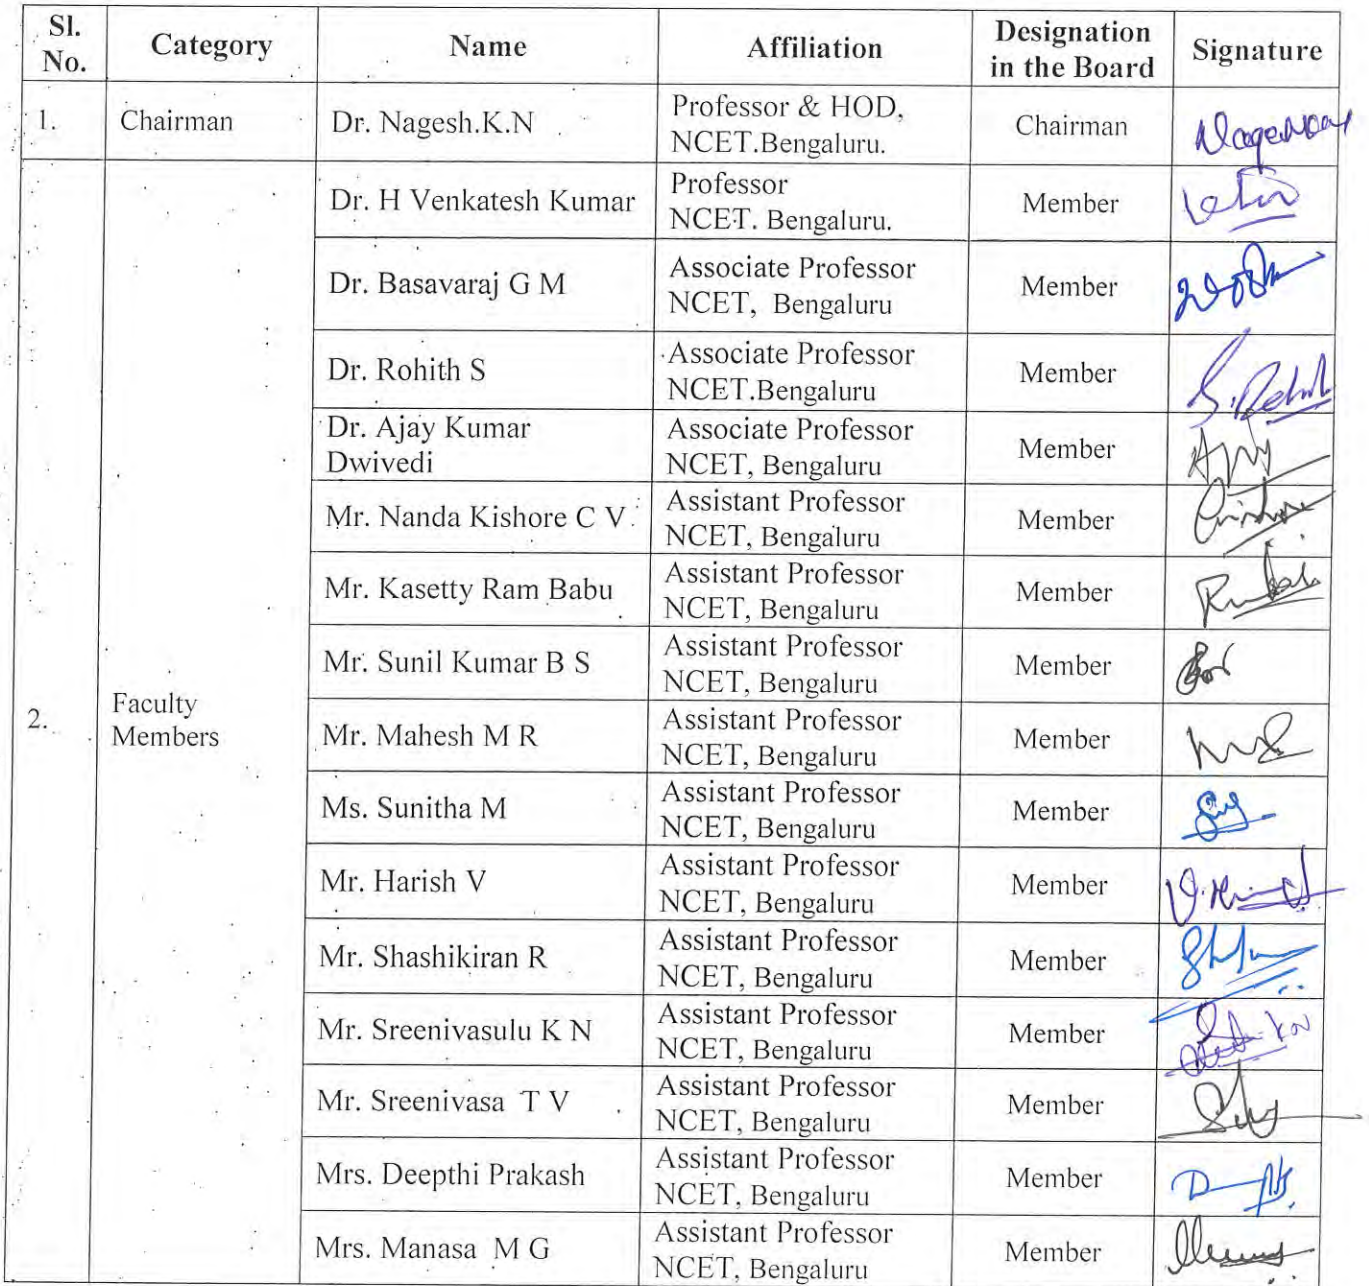 Sl. No. Category Name Affiliation Designation in the Board Signature
1. Chairman Dr. Nagesh.K.N Professor & HOD, NCET.Bengaluru. Chairman
2. Faculty Members
Dr. H Venkatesh Kumar Professor NCET. Bengaluru. Member
Dr. Basavaraj G M Associate Professor NCET, Bengaluru Member
Dr. Rohith S Associate Professor NCET.Bengaluru Member
Dr. Ajay Kumar Dwivedi Associate Professor NCET, Bengaluru Member
Mr. Nanda Kishore C V Assistant Professor NCET, Bengaluru Member
Mr. Kasetty Ram Babu Assistant Professor NCET, Bengaluru Member
Mr. Sunil Kumar B S Assistant Professor NCET, Bengaluru Member
Mr. Mahesh M R Assistant Professor NCET, Bengaluru Member
Ms. Sunitha M Assistant Professor NCET, Bengaluru Member
Mr. Harish V Assistant Professor NCET, Bengaluru Member
Mr. Shashikiran R Assistant Professor NCET, Bengaluru Member
Mr. Sreenivasulu K N Assistant Professor NCET, Bengaluru Member
Mr. Sreenivasa T V Assistant Professor NCET, Bengaluru Member
Mrs. Deepthi Prakash Assistant Professor NCET, Bengaluru Member
Mrs. Manasa M G Assistant Professor NCET, Bengaluru Member